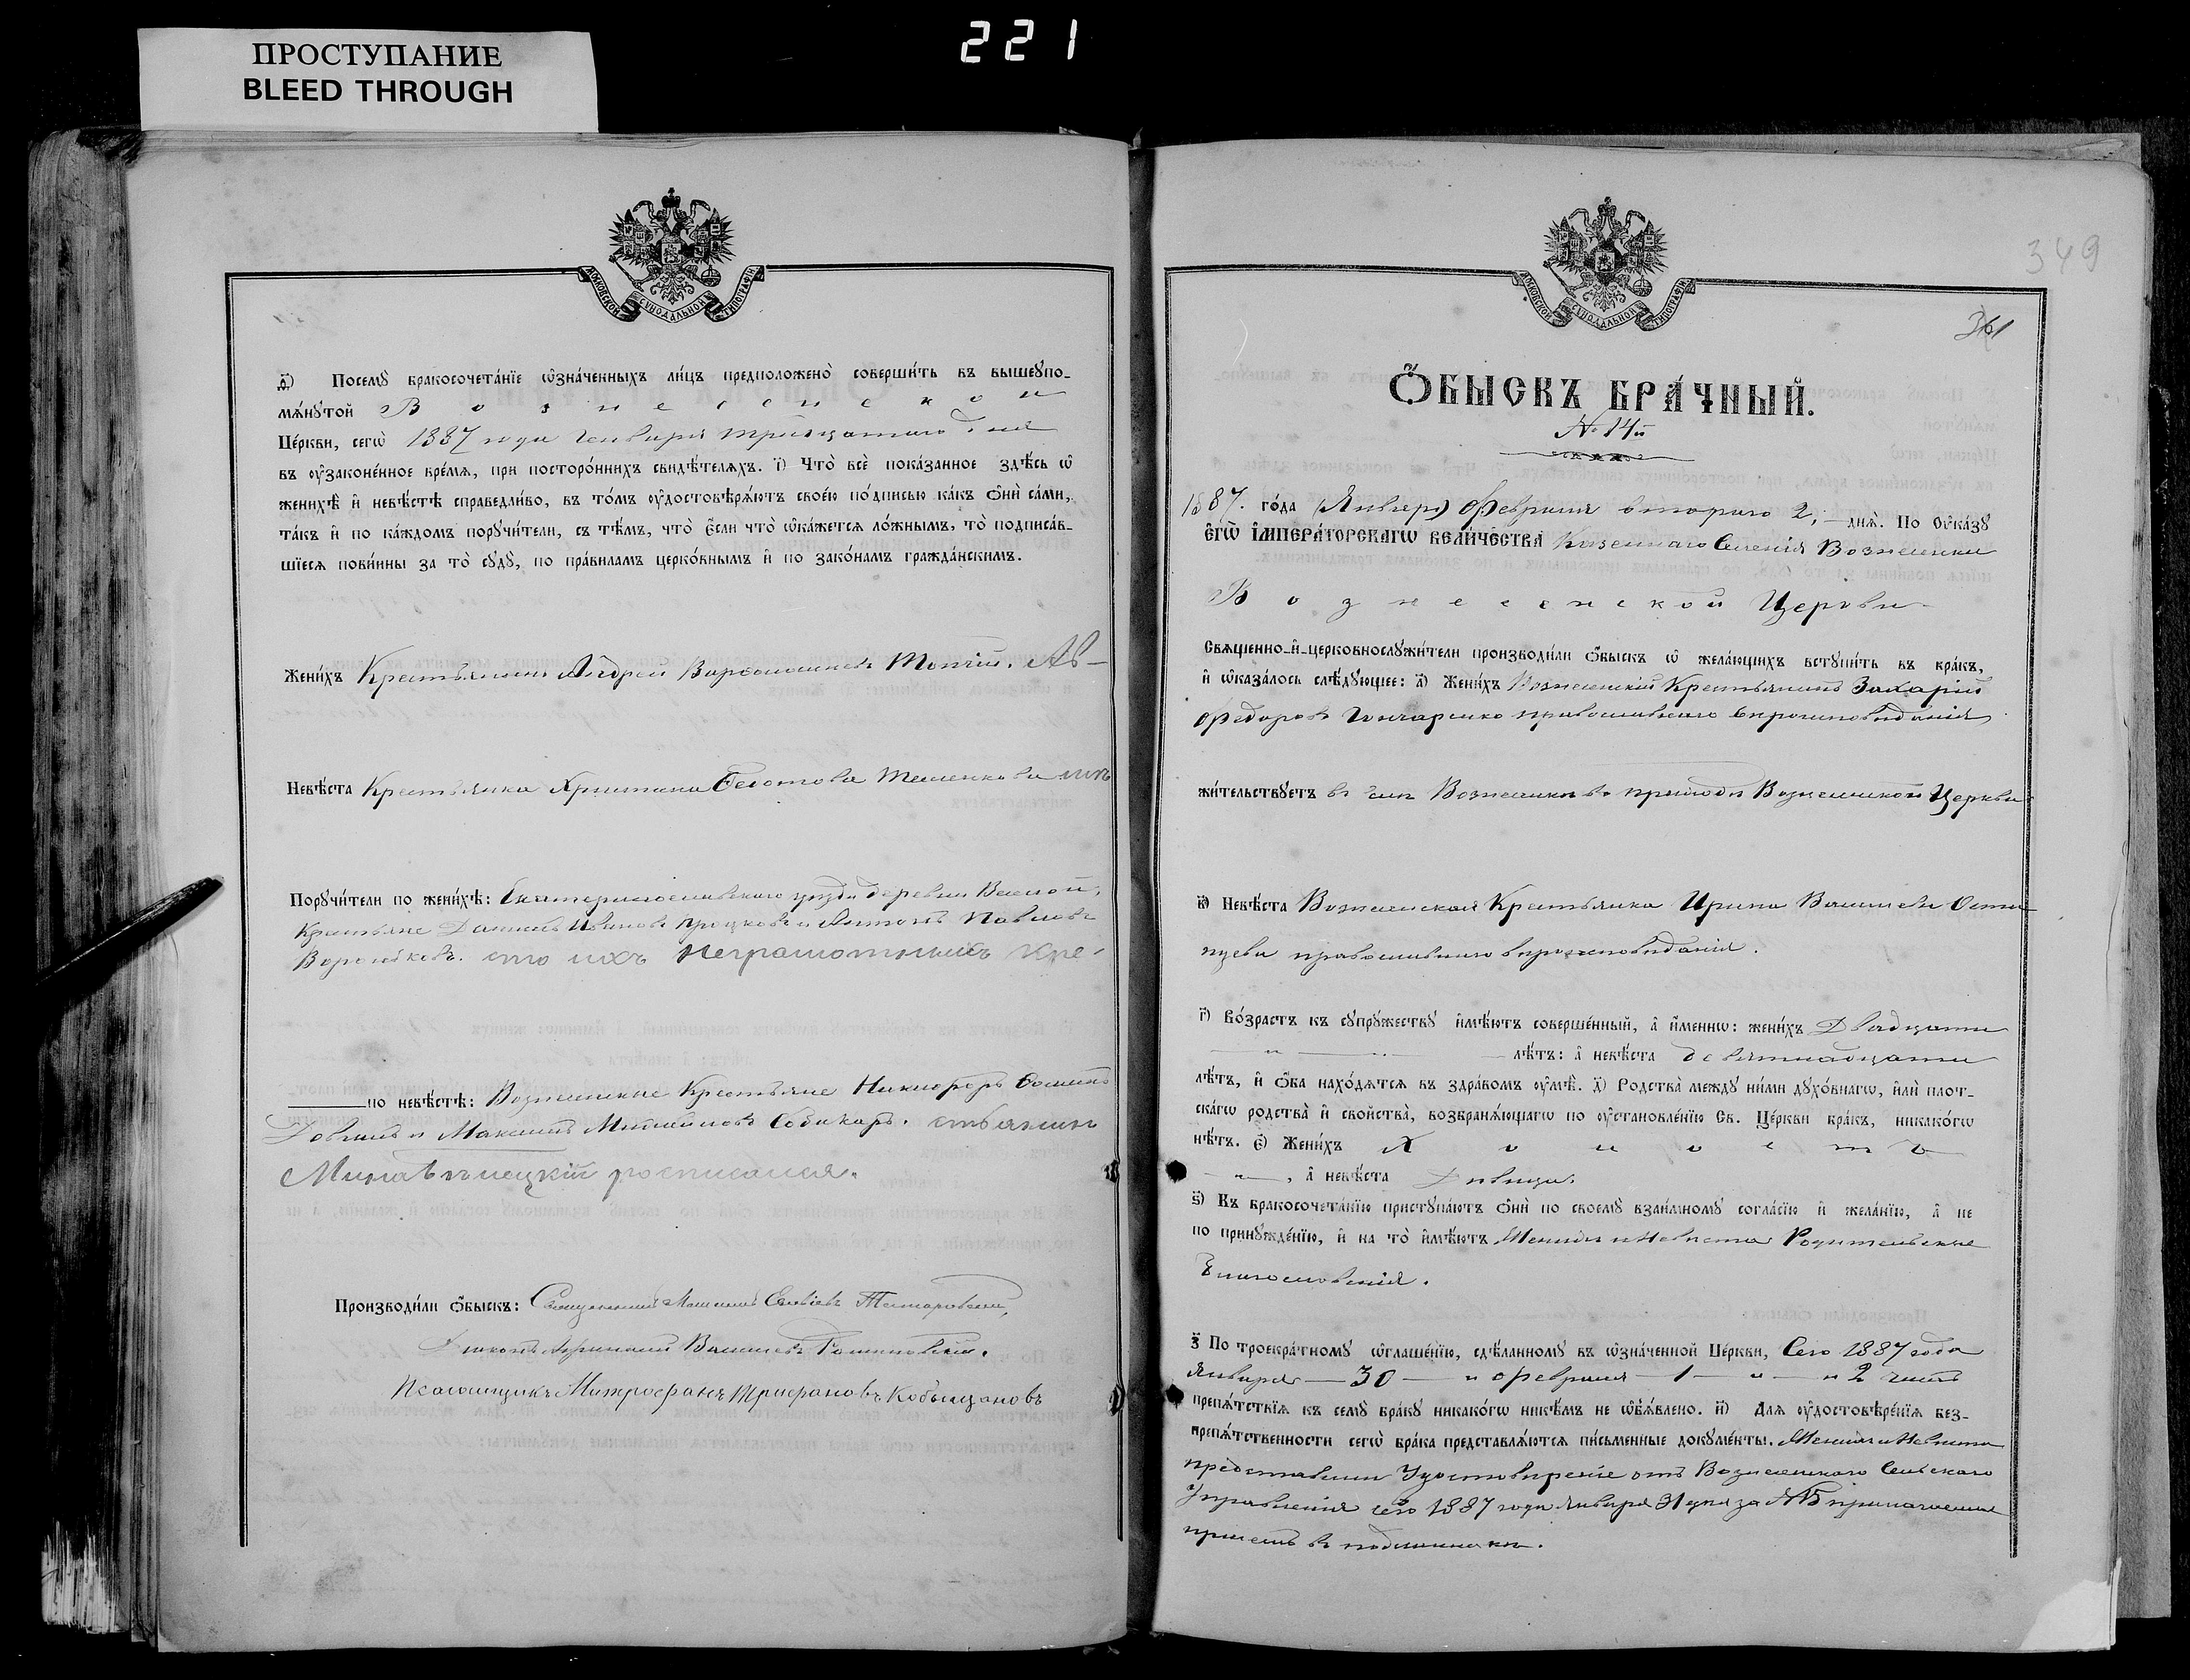 ПРОСТУПАНИЕ
BLEED THROUGH
221
МОСКОВСКОЙ СѴНОДАЛЬНОЙ ТИПОГРАФІИ
д҃) Посемꙋ̀ бракосочета́нїе ѡ҆зна́ченныхъ ли́цъ предположено̀ соверши́ть въ вышеꙋпо-
мѧ́нꙋтой Вознесенской
Це́ркви, сегѡ̀ 1887 года Генваря тридцатаго дня
въ ᲂу҆законе́нное вре́мѧ, при посторо́ннихъ свидѣ́телѧхъ. і҃) Что̀ всѐ пока́занное здѣ́сь ѡ҆
женихѣ̀ и҆ невѣ́стѣ справедли́во, въ то́мъ ᲂу҆достовѣрѧ́ютъ свое́ю по́дписью ка́къ ѻ҆нѝ са́ми,
та́къ и҆ по ка́ждомъ порꙋчи́тели, съ тѣ́мъ, что̀ є҆́сли что̀ ѡ҆ка́жетсѧ ло́жнымъ, то̀ подписа́в-
шїесѧ пови́нны за то̀ сꙋдꙋ̀, по пра́виламъ церко́внымъ и҆ по зако́намъ гражда́нскимъ.
Жени́хъ Крестьянинъ Андрей Топчій. Ав-
Невѣ́ста Крестьянка Христина
Порꙋчи́тели по женихѣ̀: Екатеринославскаго уѣзда деревни
Крестьяне Иванов и Антонъ Павловъ
неграмотныхъ кре-
по невѣ́стѣ: Вознесенские Крестьяне Никифоръ
и Максимъ Михайловъ
росписался.
Производи́ли ѻ҆́быскъ: Священникъ
Дьяконъ
Псаломщикъ Митрофанъ Трифановъ Кобыщановъ
349
361
МОСКОВСКОЙ СѴНОДАЛЬНОЙ ТИПОГРАФІИ
Ѻ҆́БЫСКЪ БРА́ЧНЫЙ.
№ 14й
1887. го́да (Январ) Февраля втораго 2, днѧ̀. По Оу҆ка́зꙋ
Є҆гѡ̀ І҆мпера́торскагѡ Вели́чества Казеннаго Селенія Вознесенки
Вознесенской Церкви
Свѧще́нно-и҆-церковнослꙋжи́тели производи́ли ѻ҆́быскъ ѡ҆ жела́ющихъ встꙋпи́ть въ бра́къ,
и҆ ѡ҆каза́лось слѣ́дꙋющее: а҃) Жени́хъ Вознесенскій Крестьянинъ Захарій
Федоровъ Гончаренко православнаго вѣроисповѣданія
жи́тельствꙋетъ въ селѣ Вознесенкѣ въ приходѣ Вознесенской Церкви
в҃) Невѣ́ста Вознесенская Крестьянка Ирина Васильева Оста-
пцева православнаго вѣроисповѣданія.
г҃) Во́зрастъ къ сꙋпрꙋ́жествꙋ и҆мѣ́ютъ соверше́нный, а҆ и҆́меннѡ: жени́хъ Двадцати
лѣ́тъ: а҆ невѣ́ста девятнадцати
лѣ́тъ, и҆ ѻ҆́ба нахо́дѧтсѧ въ здра́вомъ ᲂу҆мѣ̀. д҃) Родства̀ междꙋ̀ ни́ми дꙋхо́внагѡ, и҆лѝ плот-
ска́гѡ родства̀ и҆ сво́йства, возбранѧ́ющагѡ по ᲂу҆становле́нїю Св. Це́ркви бра́къ, никако́гѡ
нѣ́тъ. є҃) Жени́хъ Холостъ
, а҆ невѣ́ста Дѣвица.
ѕ҃) Къ бракосочета́нїю пристꙋпа́ютъ ѻ҆нѝ по своемꙋ̀ взаи́мномꙋ согла́сїю и҆ жела́нїю, а҆ не
по принꙋжде́нїю, и҆ на то̀ и҆мѣ́ютъ Женихъ и Невѣста Родительские
Благословенія.
з҃ По троекра́тномꙋ ѡ҆глаше́нїю, сдѣ́ланномꙋ въ ѡ҆зна́ченной Це́ркви, Сего 1887 года
Января — 30 — и февраля — 1 — и — 2 числъ
препѧ́тствїѧ къ семꙋ̀ бра́кꙋ никако́гѡ никѣ́мъ не ѡ҆б̾ѧ́влено. и҃) Длѧ ᲂу҆достовѣре́нїѧ без-
препѧ́тственности сегѡ̀ бра́ка представлѧ́ютсѧ пи́сьменные докꙋме́нты. Женихъ и Невѣста
представили Удостовѣреніе отъ Вознесенскаго Сельскаго
Управленія сего 1887 года января 31 дня за №
въ подлинникѣ.